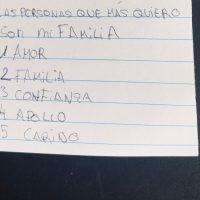 LAS PERSONAS QUE MÁS QUIERO
SON mi FAMILIA
1 AMOR
2 FAMILIA
3 CONFIANZA
4 APOLLO
5 CARIÑO